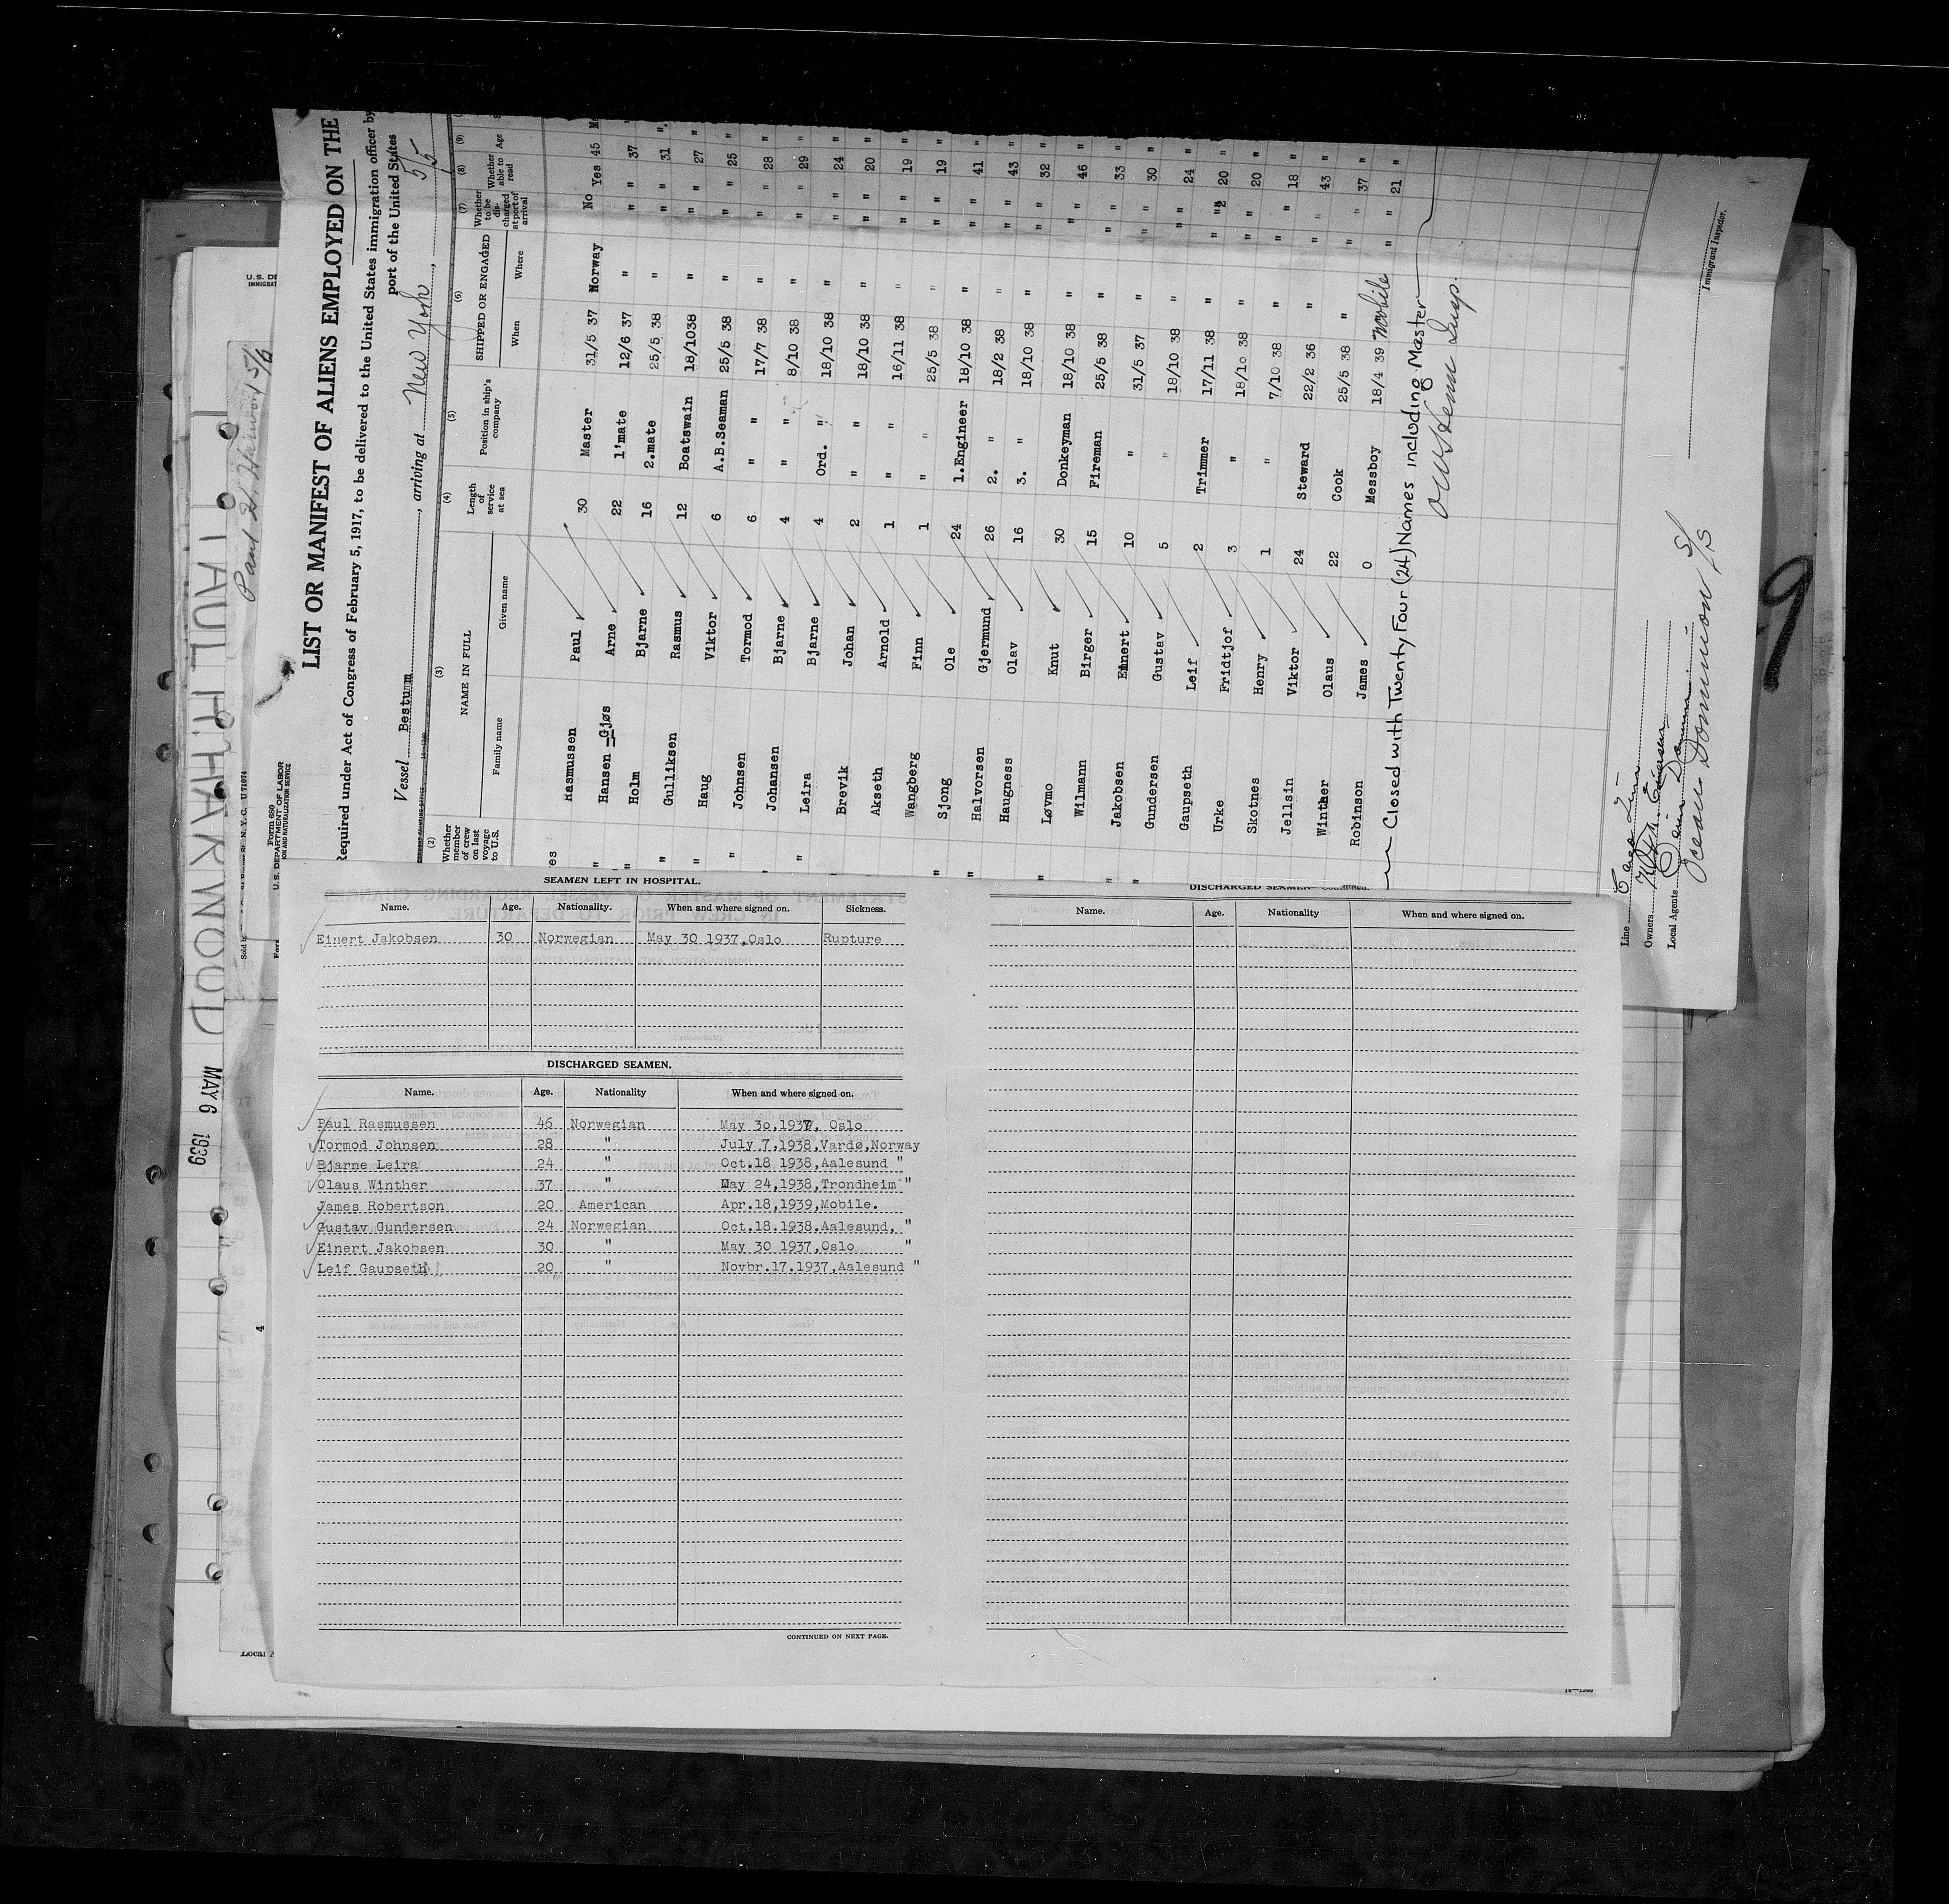 LIST OR MANIFEST OF ALIENS EMPLOYED ON THE
Required under Act of Congress of February 5, 1917, to be delivered to the United States immigration officer by
port of the United States
Vessel Bestum, arriving at New York, 5/5
(2) (3) (4) (5) (6) (7) (8) (9)
Whether member of crew on last voyage to U.S. NAME IN FULL Family name Given name Length of service at sea Position in ship's company SHIPPED OR ENGAGED When Where Whether to be discharged at port of arrival Whether able to read Age
es Rasmussen Paul 30 Master 31/5 37 Norway No Yes 45
" Hansen Gjøs Arne 22 1'mate 12/6 37 " " " 37 "
" Holm Bjarne 16 2.mate 25/5 38 " " " 31 "
" Gulliksen Rasmus 12 Boatswain 18/1038 " " " 27 "
" Haug Viktor 6 A.B.Seaman 25/5 38 " " " 25 "
" Johnsen Tormod 6 " 17/7 38 " " " 28 "
Johansen Bjarne 4 " 8/10 38 " " " 29 "
" Leira Bjarne 4 Ord. " 18/10 38 " " " 24 "
Brevik Johan 2 " 18/10 38 " " " 20 "
Akseth Arnold 1 " 16/11 38 " " " 19 "
Wangberg Finn 1 " 25/5 38 " " " 19 "
" Sjong Ole 24 1.Engineer 18/10 38 " " " 41 "
" Halvorsen Gjermund 26 2. " 18/2 38 " " " 43 "
Haugness Olav 16 3. " 18/10 38 " " " 32 "
" Løvmo Knut 30 Donkeyman 18/10 38 " " " 46 "
" Wilmann Birger 15 Fireman 25/5 38 " " " 33 "
" Jakobsen Einert 10 " 31/5 37 " " " 30 "
Gundersen Gustav 5 " 18/10 38 " " " 24 "
Gaupseth Leif 2 Trimmer 17/11 38 " " " 20 "
Urke Fridtjof 3 " 18/10 38 " " " 20 "
Skotnes Henry 1 " 7/10 38 " " " 18 "
Jellsin Viktor 24 Steward 22/2 36 " " " 43 "
Winther Olaus 22 Cook 25/5 38 " " " 37 "
Robinson James 0 Messboy 18/4 39 Mobile " " 21 "
Closed with Twenty Four (24) Names including Master
Immigrant Inspector.
Line
Owners
Local Agents
Ocean Dominion S/S
U.S. DE
IMMIGRAT
Form 689
U.S. DEPARTMENT OF LABOR
ION AND NATURALIZATION SERVICE
PAUL H. HARWOOD
MAY 6 1939
Paul H. Harwood 5/6
9
4
SEAMEN LEFT IN HOSPITAL.
Name. Age. Nationality. When and where signed on. Sickness.
Einert Jakobsen 30 Norwegian May 30 1937,Oslo Rupture
DISCHARGED SEAMEN.
Name. Age. Nationality When and where signed on.
Paul Rasmussen 46 Norwegian May 3o,1937, Oslo
Tormod Johnsen 28 " July 7,1938,Vardø,Norway
Bjarne Leira 24 " Oct.18 1938,Aalesund "
Olaus Winther 37 " May 24,1938,Trondheim "
James Robertson 20 American Apr.18,1939,Mobile.
Gustav Gundersen 24 Norwegian Oct.18.1938.Aalesund, "
Einert Jakobsen 30 " May 30 1937,Oslo "
Leif Gaupseth 20 " Novbr.17.1937,Aalesund "
CONTINUED ON NEXT PAGE.
DISCHARGED SEAMEN—Continued.
Name. Age. Nationality When and where signed on.